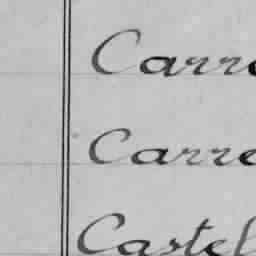 Carre
Carre
Castel